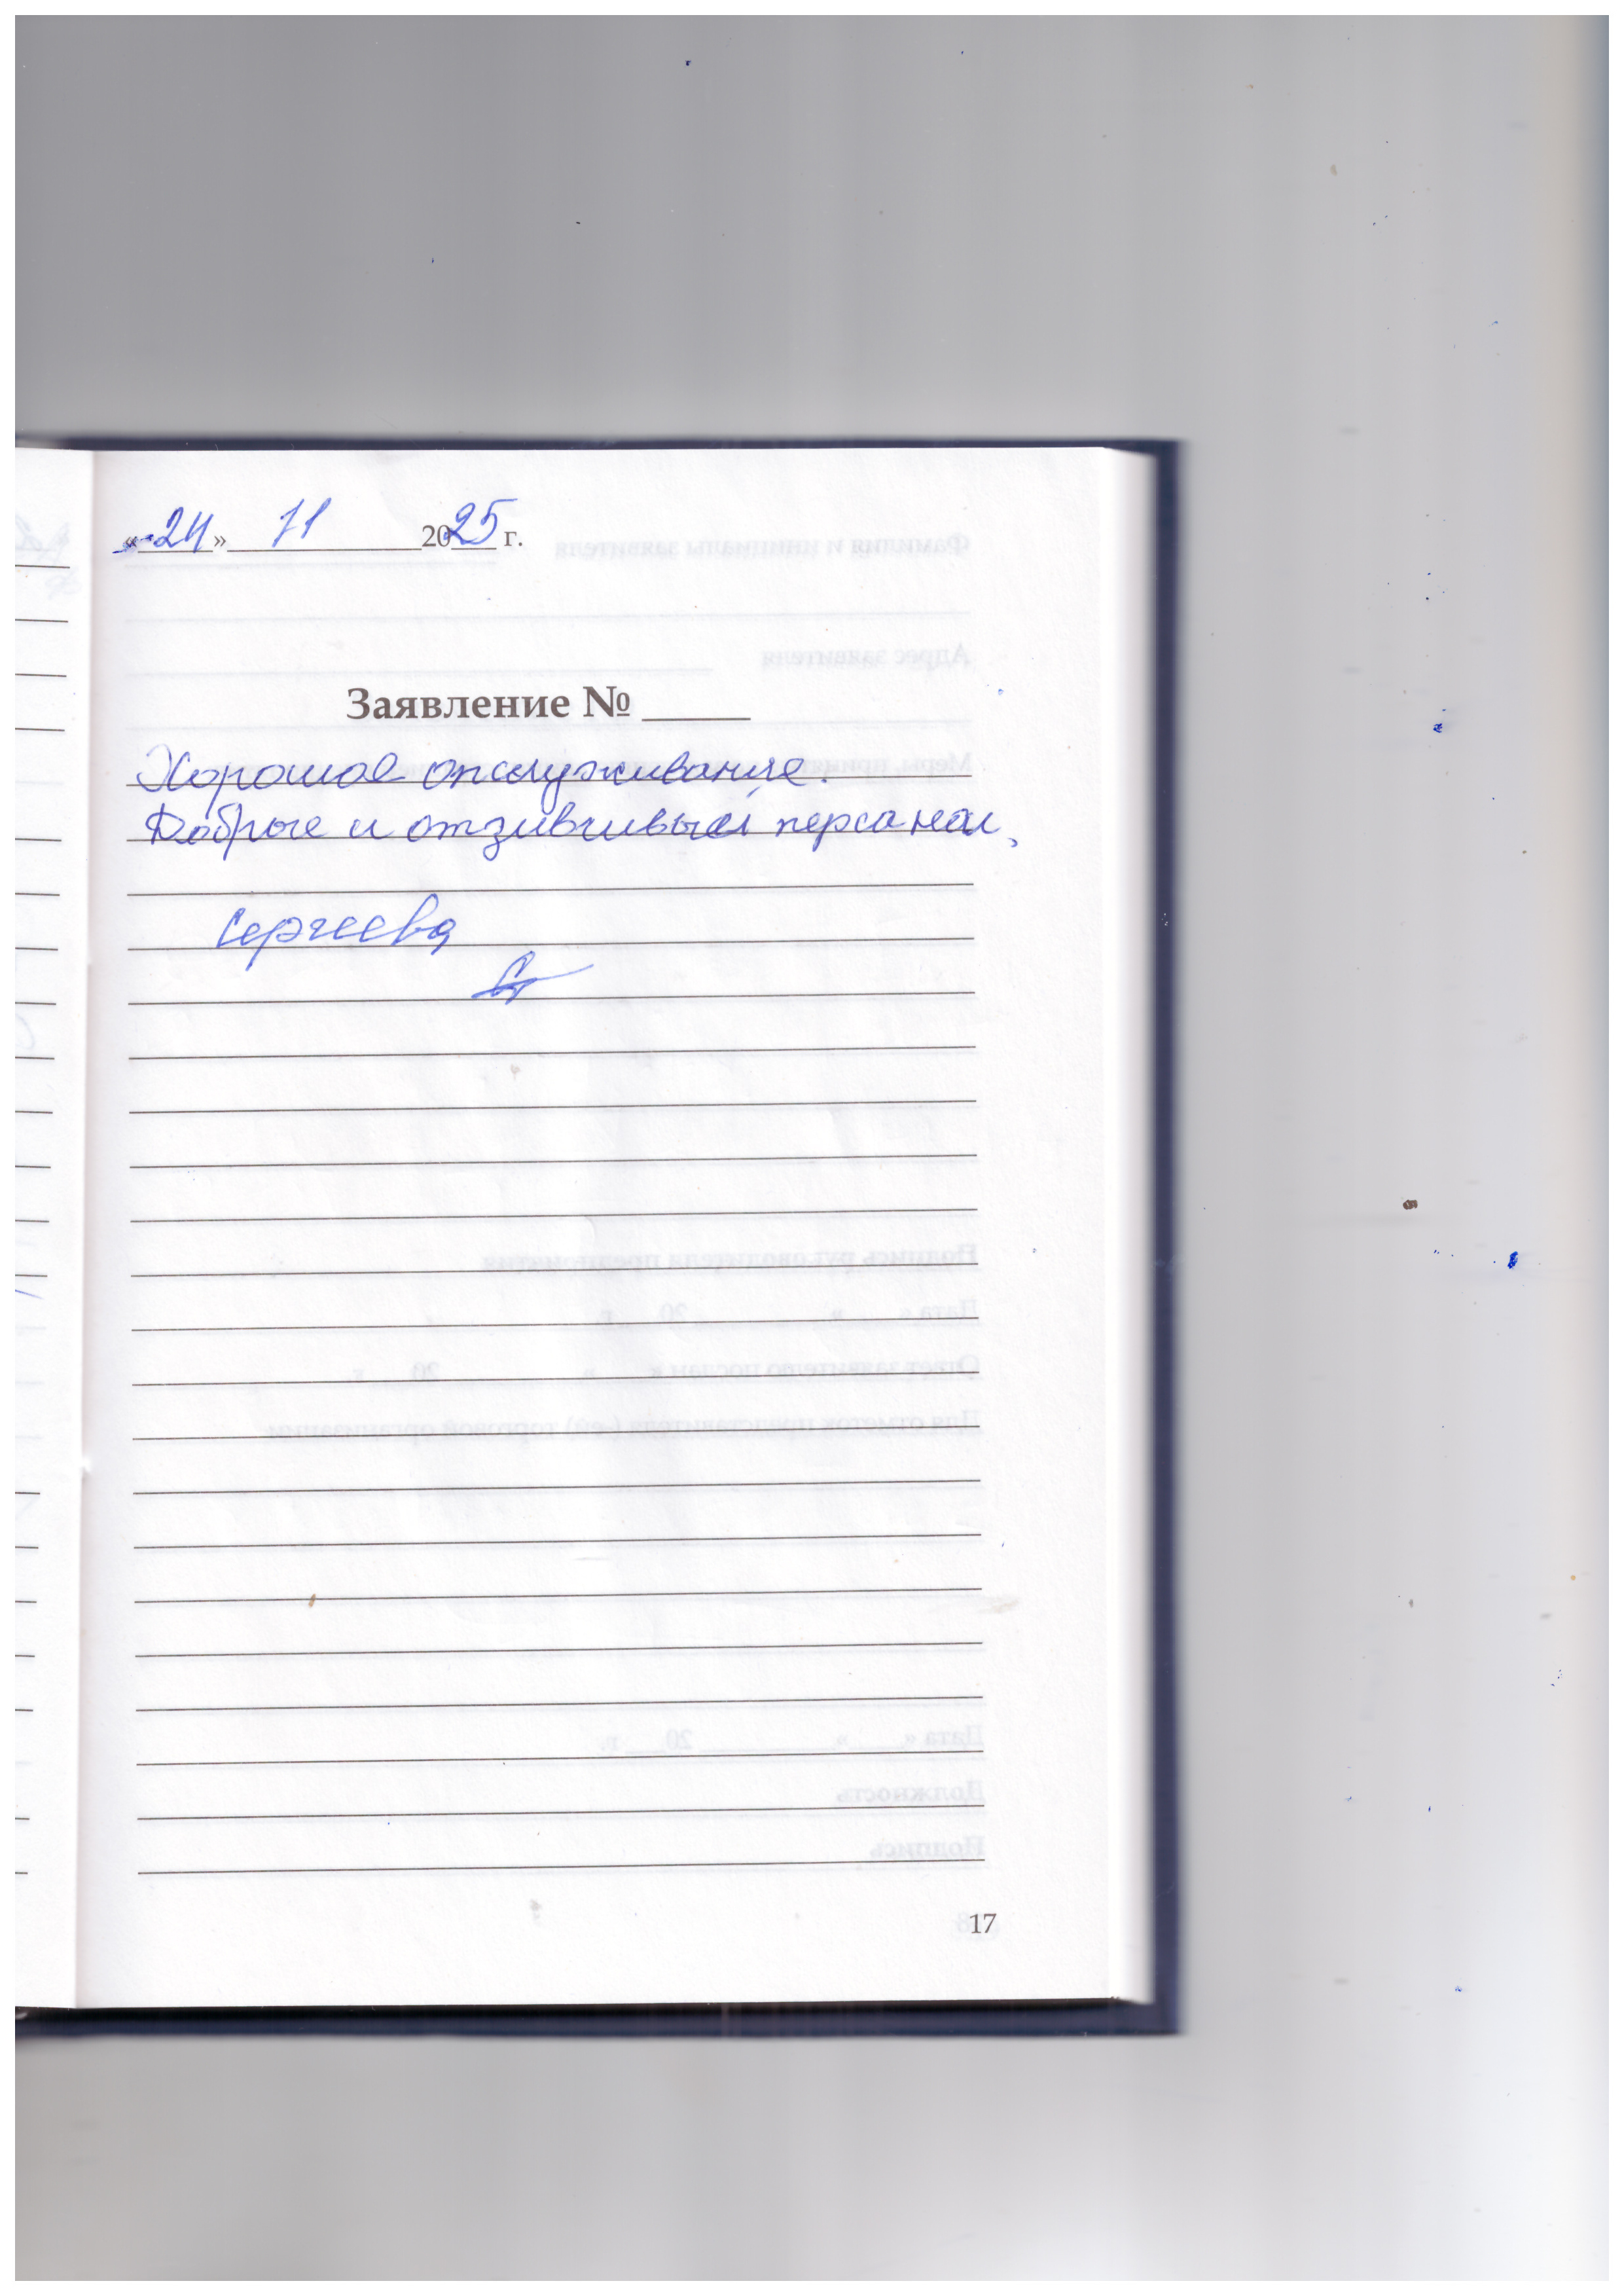 «24» 11 2025 г.
Заявление № _____
Хорошое опслуживание.
Доброе и отзивчивый персанал,
Сергеева
17